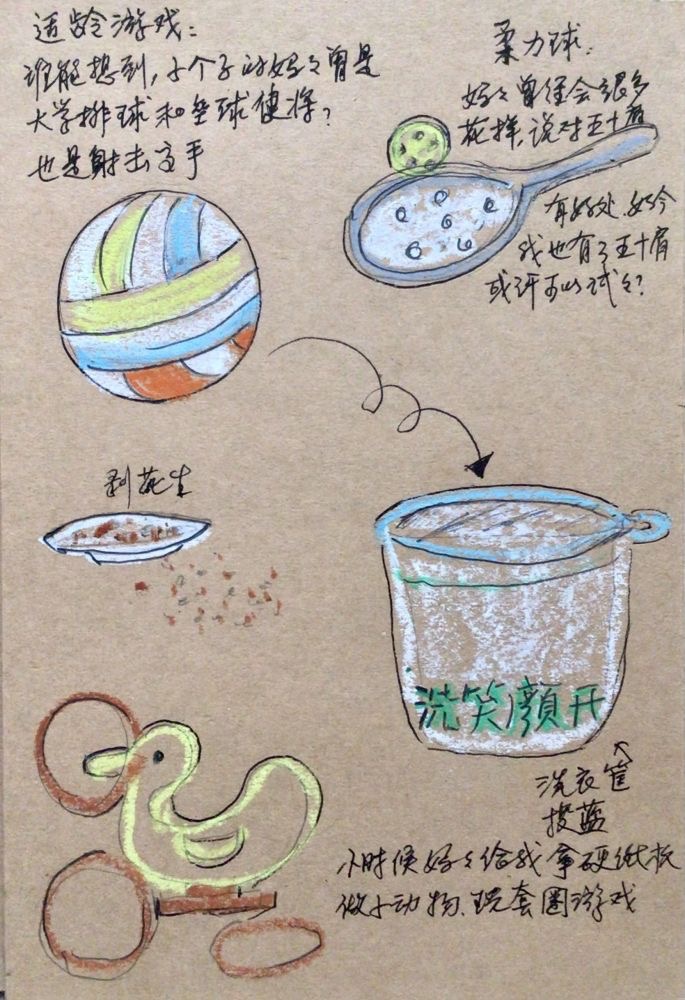 适龄游戏：
谁能想到，小个子的曾是
大学排球和垒球健将？
也是射击高手
柔力球：
曾经会很多
花样，说对五十肩
有好处，如今
我也有了五十肩
或许可以试々？
剥花生
洗笑顏开
洗衣筐
投蓝
小时候给我拿硬纸板
做小动物，玩套圈游戏